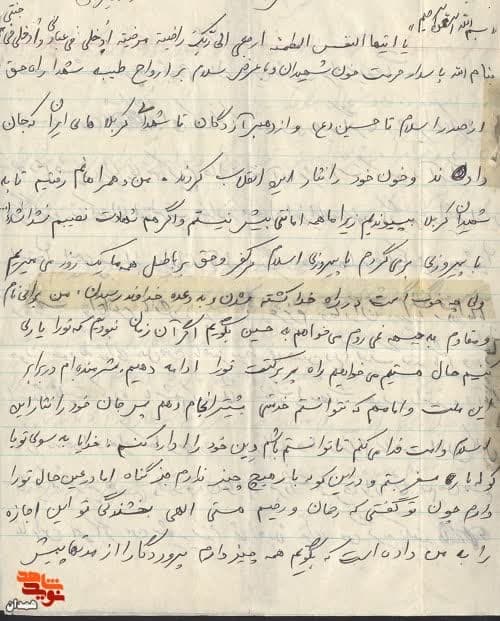 «بسم الله الرحمن الرحیم»
یا ایتها النفس المطمئنه ارجعی الی ربک راضیة مرضیة فادخلی فی عبادی و ادخلی فی جنتی
بنام الله پاسدار حرمت خون شهیدان و با عرض سلام بر ارواح طیبه شهدا راه حق
از صدر اسلام تا حسین (ع) و از رهبر آزادگان تا شهدای کربلا های ایران که جان
دادند و خون خود را نثار این انقلاب کردند. من و همراهانم رفتیم تا به
شهدای کربلا بپیوندیم زیرا ما همه امانتی بیش نیستیم و اگر هم شهادت نصیبم نشد انشاا...
با پیروزی بر می گردم با پیروزی اسلام بر کفر و حق بر باطل همه ما یک روز می میریم
ولی چه خوب است در راه خدا کشته شدن و به وعده خداوند رسیدن. من برای نام
و مقام به جبهه نمی روم می خواهم به حسین بگویم اگر آن زمان نبودیم که تو را یاری
کنیم حال هستیم می خواهیم راه پر برکت تو را ادامه دهیم، شرمنده ام در برابر
این ملت و امامم که نتوانستم خدمتی بیشتر انجام دهم پس جان خود را نثار این
اسلام و امت فدا می کنم تا توانسته باشم دین خود را ادا کنم، خدایا به سوی تو با
کوله بار سفر بستم و در این کوله بار هیچ چیز ندارم جز گناه اما در عین حال تو را
دارم چون تو گفتی که رحمان و رحیم هستی الهی بخشندگی تو این اجازه
را به من داده است که بگویم همه چیز دارم پروردگارا از مدتها پیش
نوید شاهد
همدان